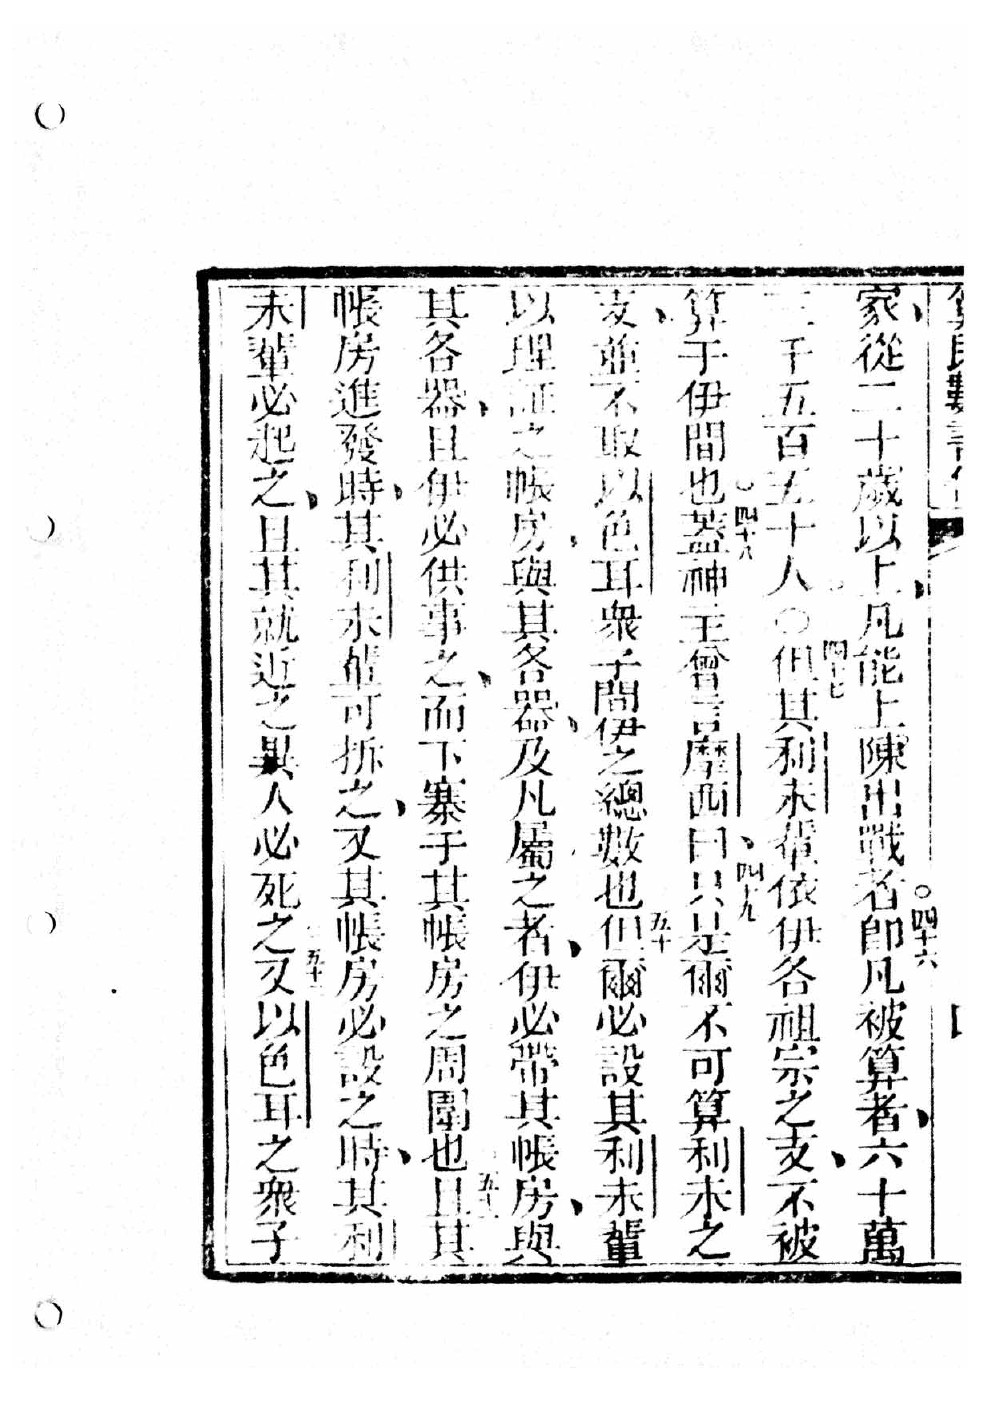 家、從二十歲以上、凡能上陳出戰者○四十六即凡被算者、六十萬
三千五百五十人○四十七但其利未輩依伊各祖宗之支、不被
算于伊間也○四十八蓋神主曾言摩西曰、四十九只是爾不可算利未之
支、並不取以色耳眾子間伊之總數也五十但爾必設其利未輩
以理証之帳房、與其各器、及凡屬之者、伊必帶其帳房、與
其各器、且伊必供事之、而下寨于其帳房之周圍也五十一且其
帳房進發時、其利未輩可拆之、又其帳房必設之時、其利
未輩必起之、且其就近之異人必死之五十二又以色耳之眾子